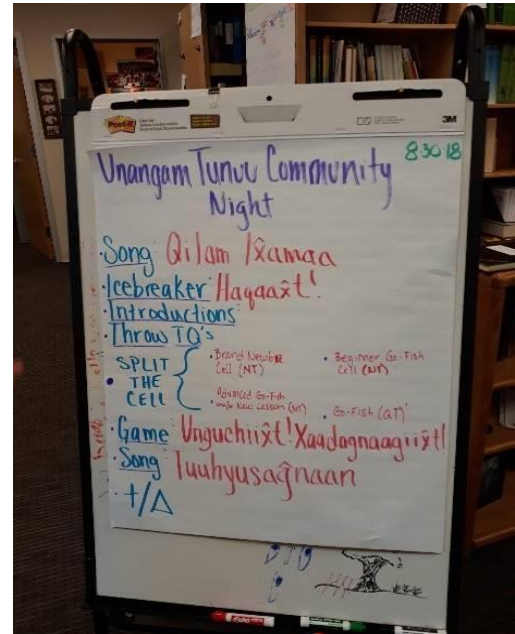 Post-it
3M
Unangam Tunuu Community 8·30·18
Night
·Song Qilam Ix̂amaa
·Icebreaker Haqaax̂t!
·Introductions
·Throw TQ's
SPLIT
• THE
CELL
• Brand Newbie
Cell (NT)
• Beginner Go-Fish
Cell (NT)
• Advanced Go-Fish
and/or New Lesson (NT)
• Go-Fish (QT)
·Game Unguchiix̂t! Xaadagnaagiix̂t!
·Song Tuuhyusaĝnaan
· +/Δ
Expo